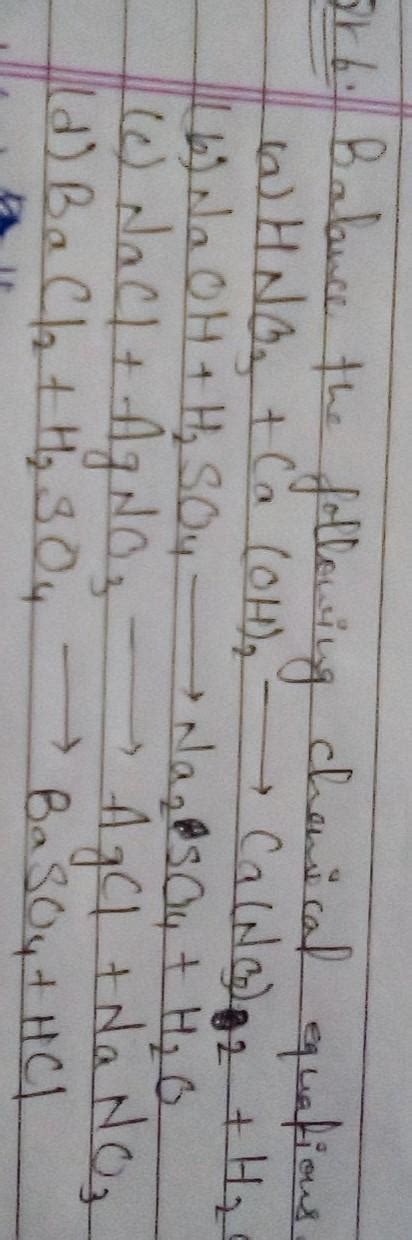 Q. 6. Balance the following chemical equations.
(a) HNO₃ + Ca (OH)₂ ⟶ Ca(NO₃)₂ + H₂
(b) NaOH + H₂SO₄ ⟶ Na₂SO₄ + H₂O
(c) NaCl + AgNO₃ ⟶ AgCl + NaNO₃
(d) BaCl₂ + H₂SO₄ ⟶ BaSO₄ + HCl